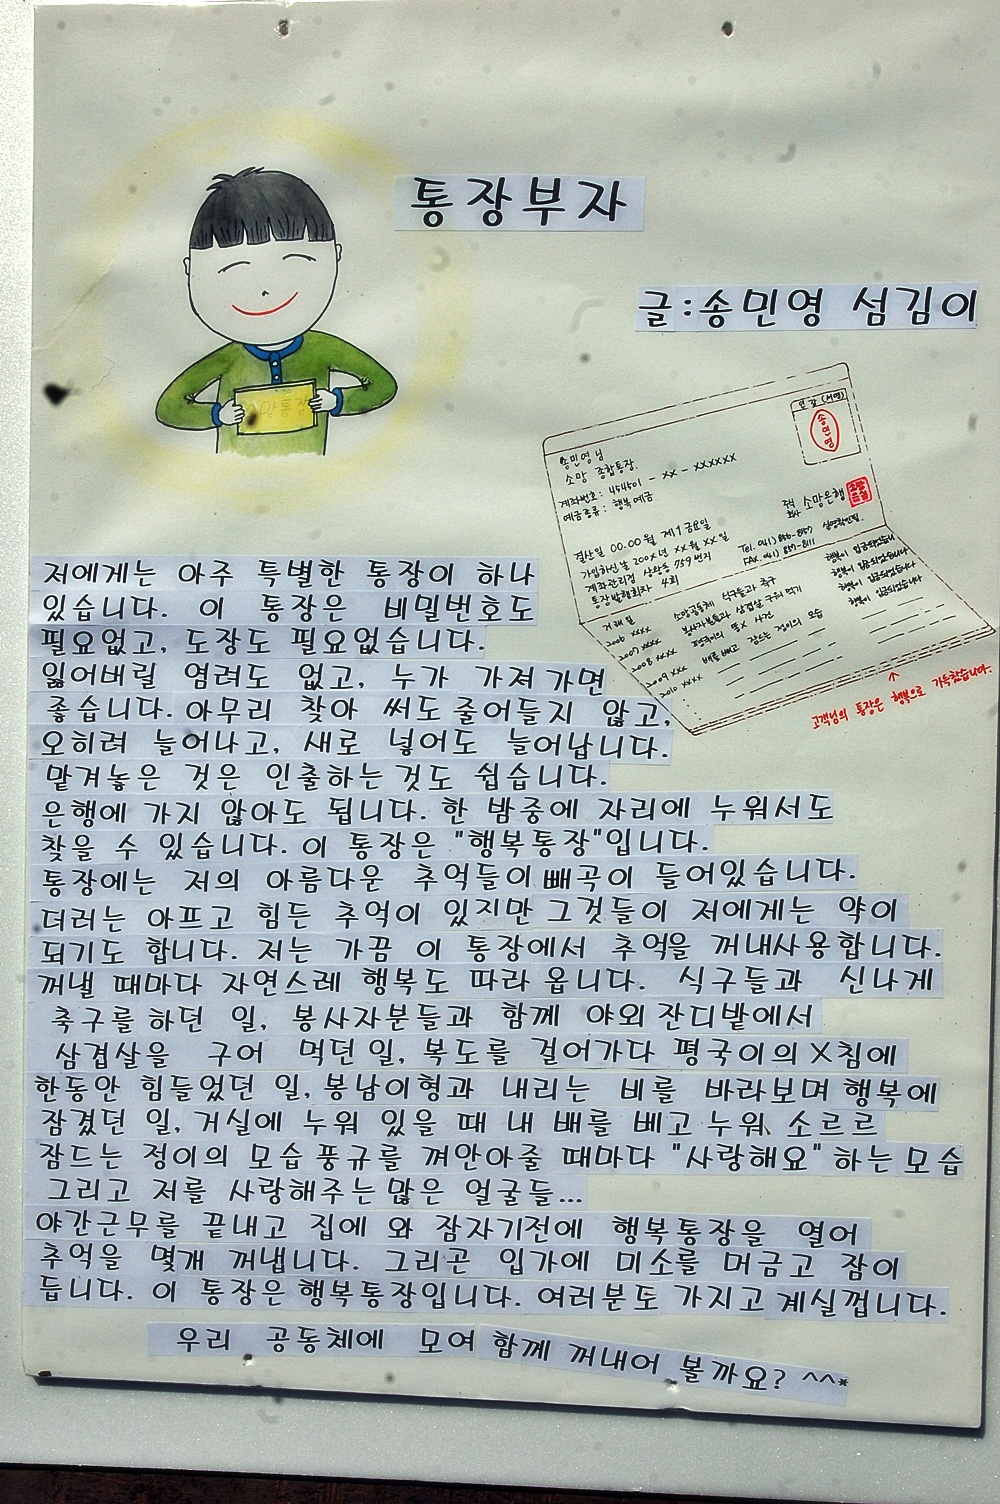 통장부자
글:송민영 섬김이
소망통장
인감(서명)
송민영
송민영님
소망 종합통장.
계좌번호: 454501 - xx - xxxxxx
예금종류: 행복예금
주식회사 소망은행
결산일 00.00월 제1금요일
가입하신날 200x년 xx월 xx일
계좌관리점 상왕동 759번지
통장발행회차 4회
Tel. 041) 856-8157
FAX. 041) 857-8111
거래일
2006 xxxx 소망공동체 식구들과 축구 행복이 입금되었습니다
2007 xxxx 봉사자분들과 삼겹살 구워 먹기 행복이 입금되었습니다
2008 xxxx 평국이의 똥X 사건 행복이 입금되었습니다
2009 xxxx 배를 베고 잠드는 정이의 모습 행복이 입금되었습니다
2010 xxxx
고객님의 통장은 행복으로 가득찼습니다.
저에게는 아주 특별한 통장이 하나
있습니다. 이 통장은 비밀번호도
필요없고, 도장도 필요없습니다.
잃어버릴 염려도 없고, 누가 가져가면
좋습니다. 아무리 찾아 써도 줄어들지 않고,
오히려 늘어나고, 새로 넣어도 늘어납니다.
맡겨놓은 것은 인출하는것도 쉽습니다.
은행에 가지 않아도 됩니다. 한 밤중에 자리에 누워서도
찾을 수 있습니다. 이 통장은 "행복통장"입니다.
통장에는 저의 아름다운 추억들이 빼곡이 들어있습니다.
더러는 아프고 힘든 추억이 있지만 그것들이 저에게는 약이
되기도 합니다. 저는 가끔 이 통장에서 추억을 꺼내사용합니다.
꺼낼 때마다 자연스레 행복도 따라 옵니다. 식구들과 신나게
축구를 하던 일, 봉사자분들과 함께 야외 잔디밭에서
삼겹살을 구어 먹던 일, 복도를 걸어가다 평국이의 X침에
한동안 힘들었던 일, 봉남이형과 내리는 비를 바라보며 행복에
잠겼던 일, 거실에 누워 있을 때 내 배를 베고 누워, 소르르
잠드는 정이의 모습 풍규를 껴안아줄 때마다 "사랑해요" 하는 모습
그리고 저를 사랑해주는 많은 얼굴들...
야간근무를 끝내고 집에 와 잠자기전에 행복통장을 열어
추억을 몇개 꺼냅니다. 그리곤 입가에 미소를 머금고 잠이
듭니다. 이 통장은 행복통장입니다. 여러분도 가지고 계실껍니다.
우리 공동체에 모여 함께 꺼내어 볼까요? ^^*